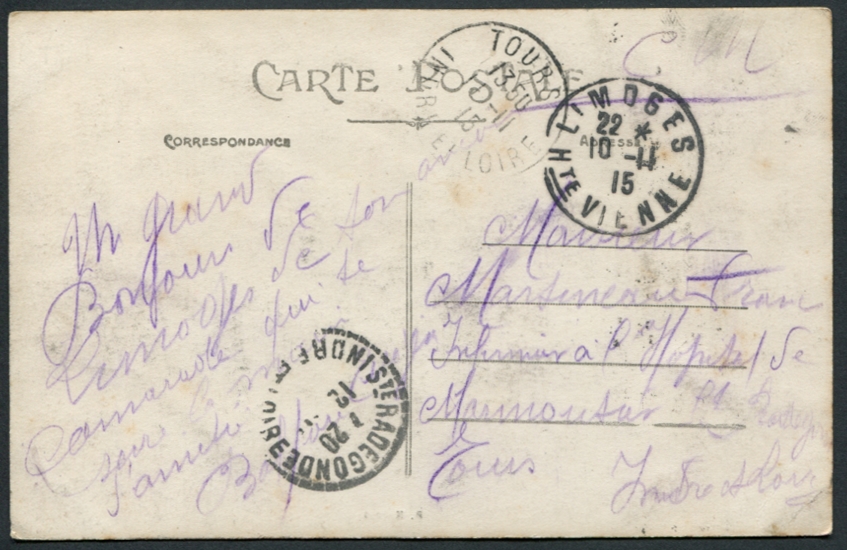 CARTE POSTALE
CORRESPONDANCE
ADRESSE
C M
TOURS
13 50
INDRE ET LOIRE
LIMOGES
22 *
10 -11
15
HTE VIENNE
Un grand
Bonjour de
Limoges de ton ami
Camarade qui te
serre la main
d'amitié
Monsieur
Martineau Franc
Infirmier à l'Hôpital de
Marmoutier Ste Radeg
Tours Indre et Loire
STE RADEGONDE
INDRE ET LOIRE
12
20